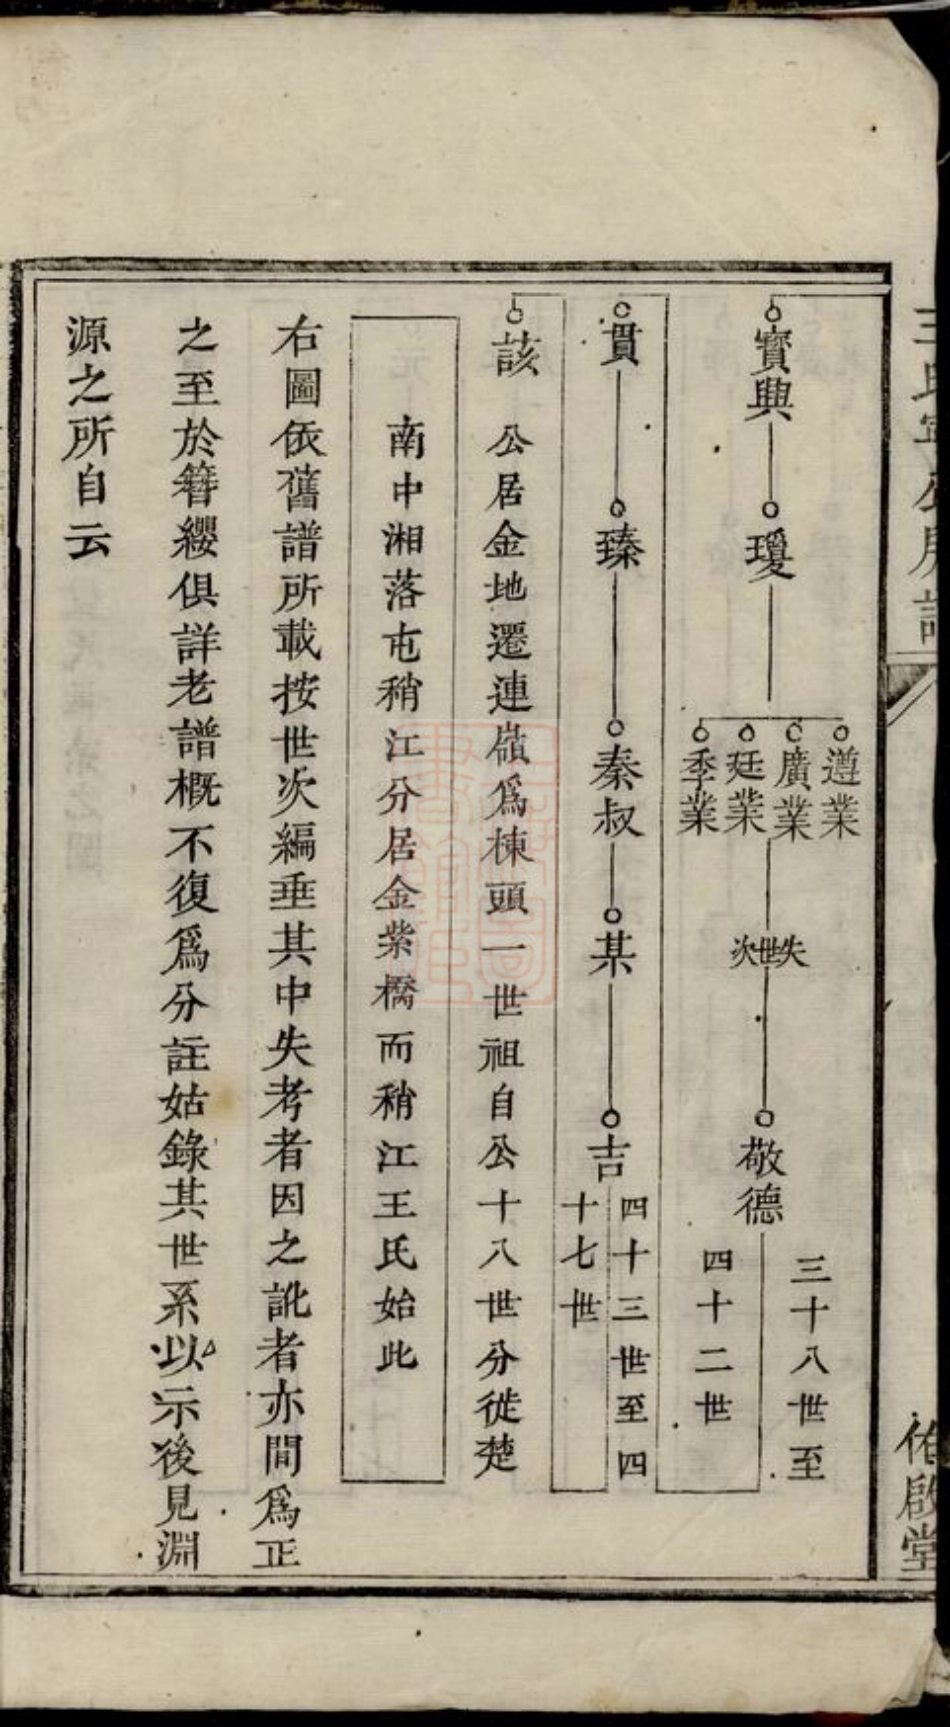 寶興
瓊
遵業
廣業
廷業
季業
失世次
敬德
三十八世至
四十二世
貫
臻
秦叔
某
吉
四十三世至四
十七世
該
公居金地遷連嶺爲棟頭一世祖自公十八世分徙楚
南中湘落屯稍江分居金紫橋而稍江王氏始此
右圖依舊譜所載按世次編垂其中失考者因之訛者亦間爲正
之至於簪纓俱詳老譜概不復爲分註姑錄其世系以示後見淵
源之所自云
佑啟堂